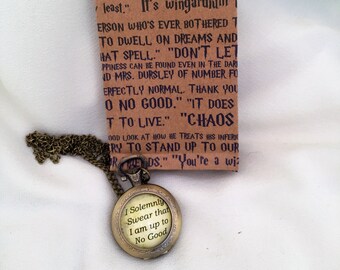 least." It's wingardium
erson who's ever bothered t
to dwell on dreams and
that spell." "Don't let
ppiness can be found even in the dar
nd Mrs. Dursley of number fo
perfectly normal, thank you
o no good." "It does
t to live." "Chaos
good look at how he treats his inferio
ry to stand up to our
r friends." "You're a wi
I Solemnly
Swear that
I am up to
No Good